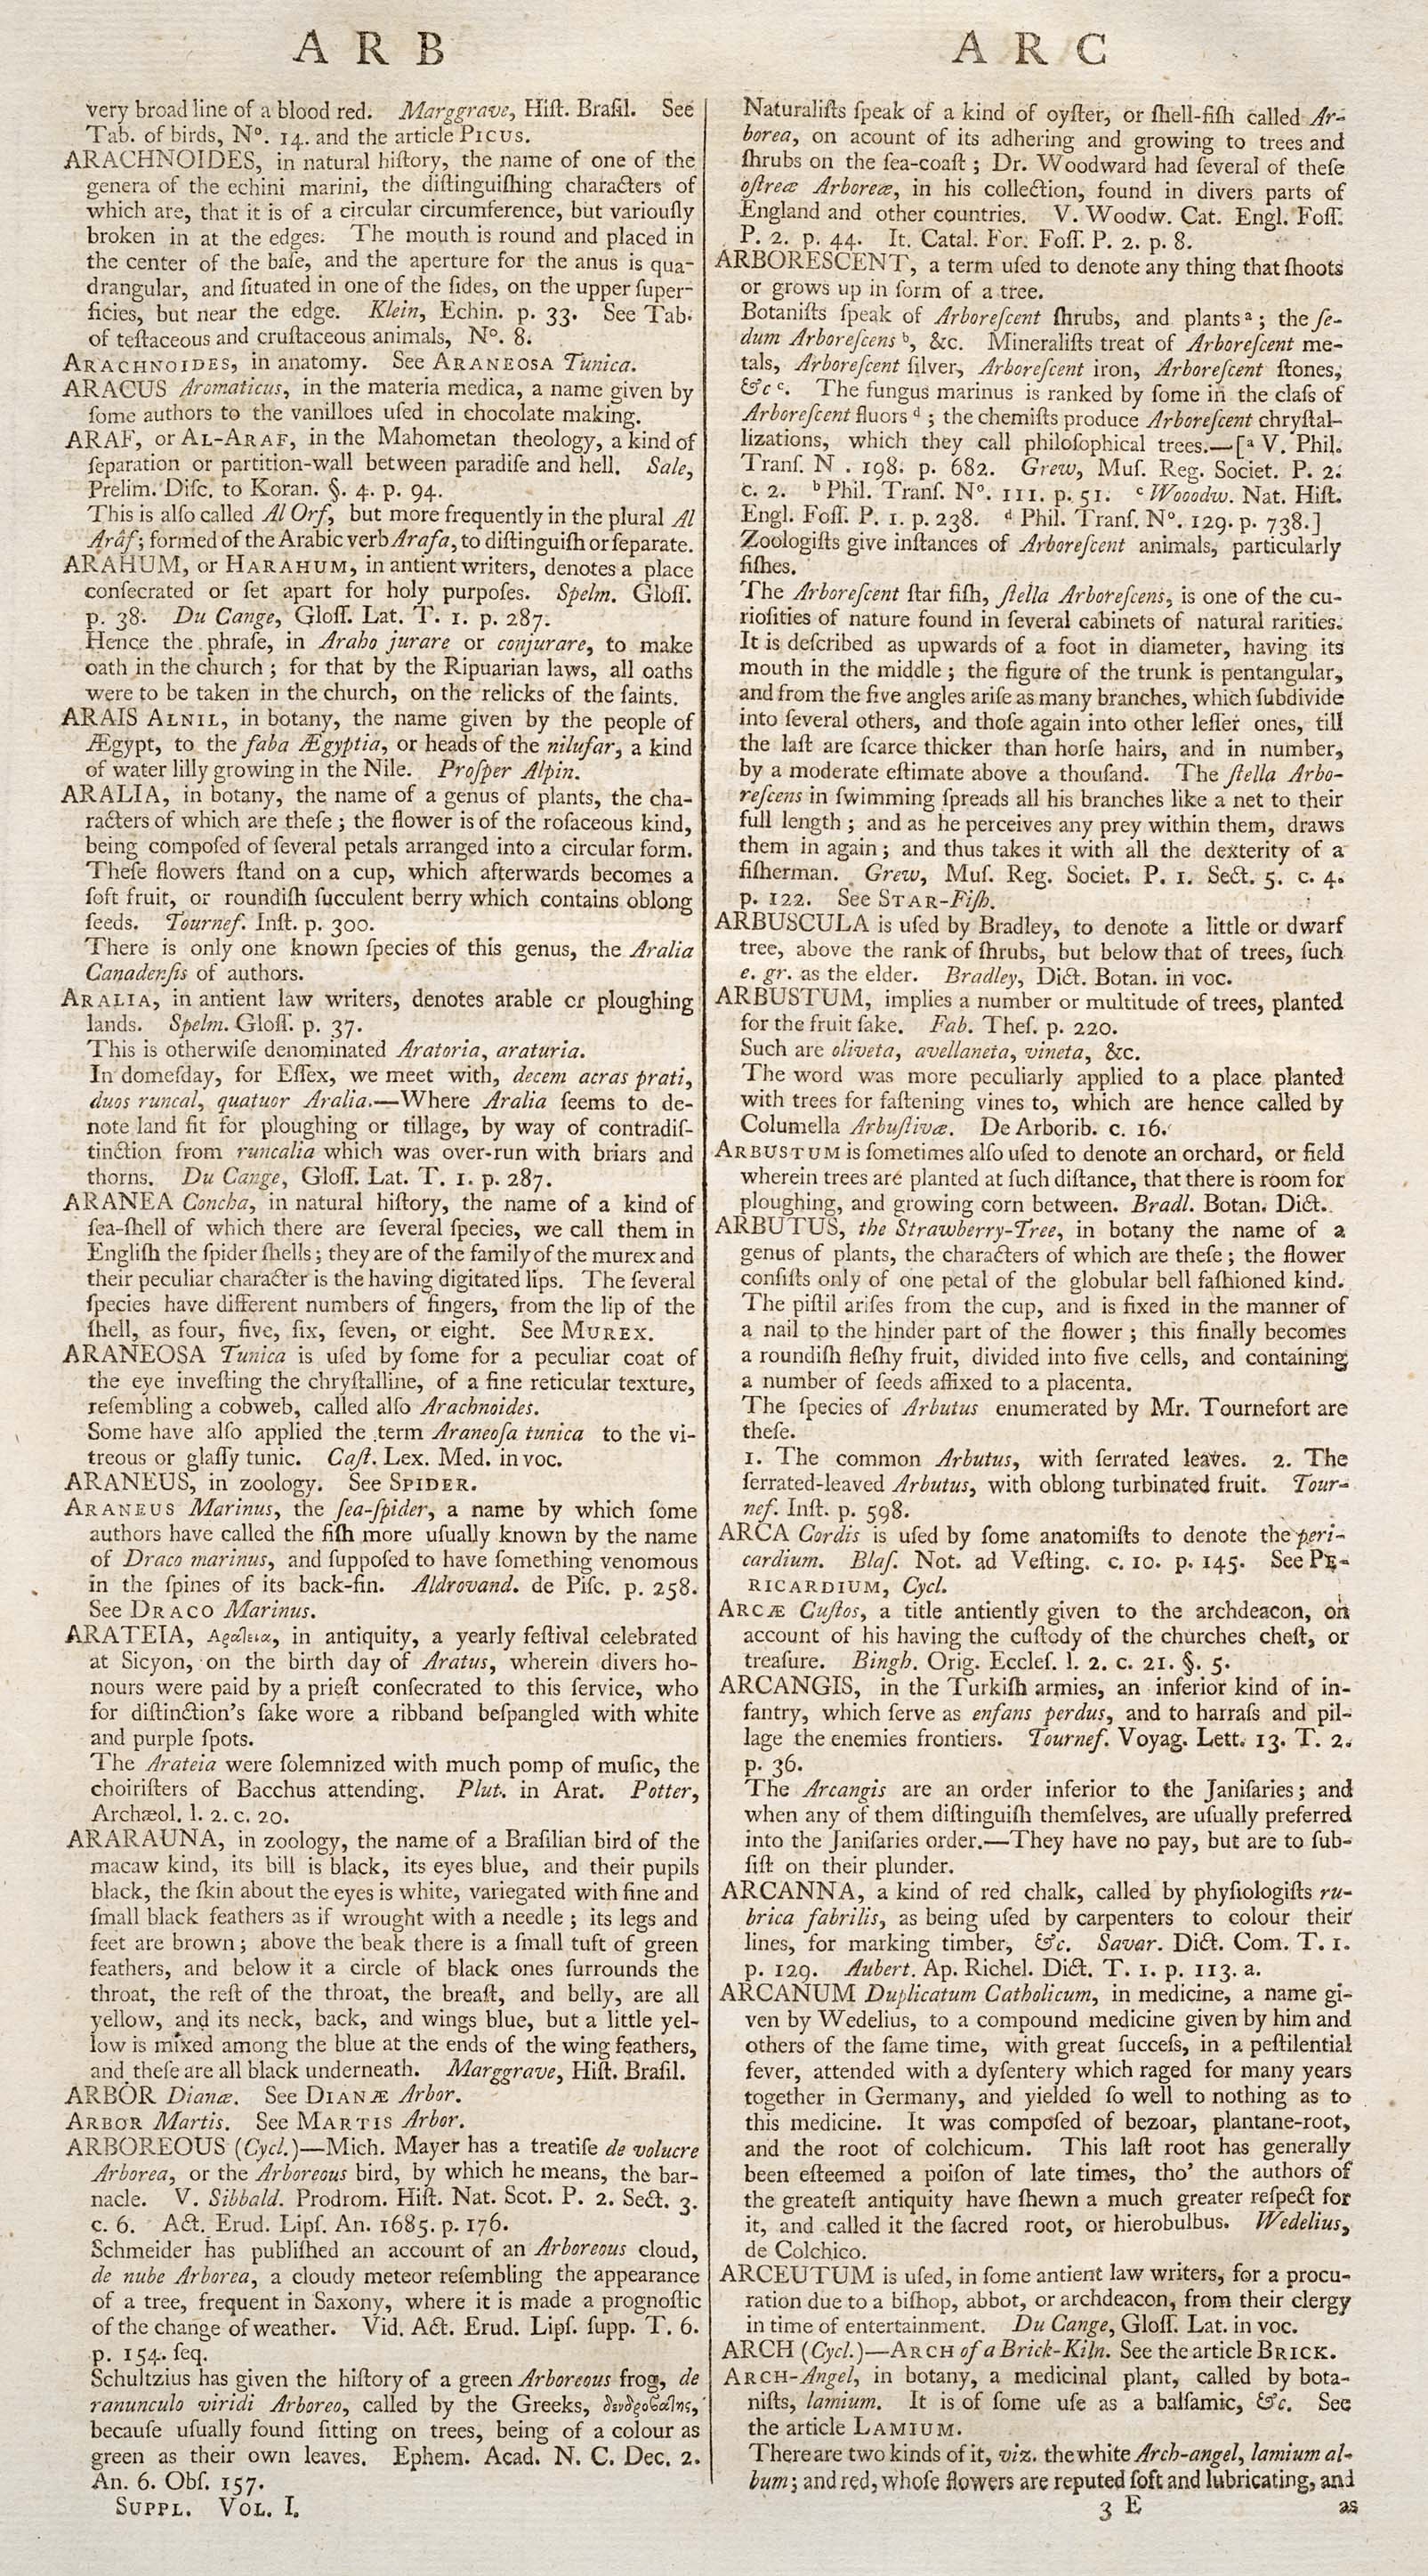 ARB
very broad line of a blood red. Marggrave, Hiſt. Braſil. See
Tab. of birds, Nº. 14. and the article PICUS.
ARACHNOIDES, in natural hiſtory, the name of one of the
genera of the echini marini, the diſtinguiſhing characters of
which are, that it is of a circular circumference, but variouſly
broken in at the edges. The mouth is round and placed in
the center of the baſe, and the aperture for the anus is qua-
drangular, and ſituated in one of the ſides, on the upper ſuper-
ficies, but near the edge. Klein, Echin. p. 33. See Tab.
of teſtaceous and cruſtaceous animals, Nº. 8.
ARACHNOIDES, in anatomy. See ARANEOSA Tunica.
ARACUS Aromaticus, in the materia medica, a name given by
ſome authors to the vanilloes uſed in chocolate making.
ARAF, or AL-ARAF, in the Mahometan theology, a kind of
ſeparation or partition-wall between paradiſe and hell. Sale,
Prelim. Diſc. to Koran. §. 4. p. 94.
This is alſo called Al Orf, but more frequently in the plural Al
Arâf; formed of the Arabic verb Arafa, to diſtinguiſh or ſeparate.
ARAHUM, or HARAHUM, in antient writers, denotes a place
conſecrated or ſet apart for holy purpoſes. Spelm. Gloſſ.
p. 38. Du Cange, Gloſſ. Lat. T. 1. p. 287.
Hence the phraſe, in Araho jurare or conjurare, to make
oath in the church; for that by the Ripuarian laws, all oaths
were to be taken in the church, on the relicks of the ſaints.
ARAIS ALNIL, in botany, the name given by the people of
Ægypt, to the faba Ægyptia, or heads of the nilufar, a kind
of water lilly growing in the Nile. Proſper Alpin.
ARALIA, in botany, the name of a genus of plants, the cha-
racters of which are theſe; the flower is of the roſaceous kind,
being compoſed of ſeveral petals arranged into a circular form.
Theſe flowers ſtand on a cup, which afterwards becomes a
ſoft fruit, or roundiſh ſucculent berry which contains oblong
ſeeds. Tournef. Inſt. p. 300.
There is only one known ſpecies of this genus, the Aralia
Canadenſis of authors.
ARALIA, in antient law writers, denotes arable or ploughing
lands. Spelm. Gloſſ. p. 37.
This is otherwiſe denominated Aratoria, araturia.
In domeſday, for Eſſex, we meet with, decem acras prati,
duos runcal, quatuor Aralia.—Where Aralia ſeems to de-
note land fit for ploughing or tillage, by way of contradiſ-
tinction from runcalia which was over-run with briars and
thorns. Du Cange, Gloſſ. Lat. T. 1. p. 287.
ARANEA Concha, in natural hiſtory, the name of a kind of
ſea-ſhell of which there are ſeveral ſpecies, we call them in
Engliſh the ſpider ſhells; they are of the family of the murex and
their peculiar character is the having digitated lips. The ſeveral
ſpecies have different numbers of fingers, from the lip of the
ſhell, as four, five, ſix, ſeven, or eight. See MUREX.
ARANEOSA Tunica is uſed by ſome for a peculiar coat of
the eye inveſting the chryſtalline, of a fine reticular texture,
reſembling a cobweb, called alſo Arachnoides.
Some have alſo applied the term Araneoſa tunica to the vi-
treous or glaſſy tunic. Caſt. Lex. Med. in voc.
ARANEUS, in zoology. See SPIDER.
ARANEUS Marinus, the ſea-ſpider, a name by which ſome
authors have called the fiſh more uſually known by the name
of Draco marinus, and ſuppoſed to have ſomething venomous
in the ſpines of its back-fin. Aldrovand. de Piſc. p. 258.
See DRACO Marinus.
ARATEIA, Αραleια, in antiquity, a yearly feſtival celebrated
at Sicyon, on the birth day of Aratus, wherein divers ho-
nours were paid by a prieſt conſecrated to this ſervice, who
for diſtinction's ſake wore a ribband beſpangled with white
and purple ſpots.
The Arateia were ſolemnized with much pomp of muſic, the
choiriſters of Bacchus attending. Plut. in Arat. Potter,
Archæol. l. 2. c. 20.
ARARAUNA, in zoology, the name of a Braſilian bird of the
macaw kind, its bill is black, its eyes blue, and their pupils
black, the ſkin about the eyes is white, variegated with fine and
ſmall black feathers as if wrought with a needle; its legs and
feet are brown; above the beak there is a ſmall tuft of green
feathers, and below it a circle of black ones ſurrounds the
throat, the reſt of the throat, the breaſt, and belly, are all
yellow, and its neck, back, and wings blue, but a little yel-
low is mixed among the blue at the ends of the wing feathers,
and theſe are all black underneath. Marggrave, Hiſt. Braſil.
ARBOR Dianæ. See DIANÆ Arbor.
ARBOR Martis. See MARTIS Arbor.
ARBOREOUS (Cycl.)—Mich. Mayer has a treatiſe de volucre
Arborea, or the Arboreous bird, by which he means, the bar-
nacle. V. Sibbald. Prodrom. Hiſt. Nat. Scot. P. 2. Sect. 3.
c. 6. Act. Erud. Lipſ. An. 1685. p. 176.
Schmeider has publiſhed an account of an Arboreous cloud,
de nube Arborea, a cloudy meteor reſembling the appearance
of a tree, frequent in Saxony, where it is made a prognoſtic
of the change of weather. Vid. Act. Erud. Lipſ. ſupp. T. 6.
p. 154. ſeq.
Schultzius has given the hiſtory of a green Arboreous frog, de
ranunculo viridi Arboreo, called by the Greeks, δενδροβαlης,
becauſe uſually found ſitting on trees, being of a colour as
green as their own leaves. Ephem. Acad. N. C. Dec. 2.
An. 6. Obſ. 157.
SUPPL. VOL. I.
ARC
Naturaliſts ſpeak of a kind of oyſter, or ſhell-fiſh called Ar-
borea, on acount of its adhering and growing to trees and
ſhrubs on the ſea-coaſt; Dr. Woodward had ſeveral of theſe
oſtreæ Arboreæ, in his collection, found in divers parts of
England and other countries. V. Woodw. Cat. Engl. Foſſ.
P. 2. p. 44. It. Catal. For. Foſſ. P. 2. p. 8.
ARBORESCENT, a term uſed to denote any thing that ſhoots
or grows up in form of a tree.
Botaniſts ſpeak of Arboreſcent ſhrubs, and plants ᵃ; the ſe-
dum Arboreſcens ᵇ, &c. Mineraliſts treat of Arboreſcent me-
tals, Arboreſcent ſilver, Arboreſcent iron, Arboreſcent ſtones,
&c ᶜ. The fungus marinus is ranked by ſome in the claſs of
Arboreſcent fluors ᵈ; the chemiſts produce Arboreſcent chryſtal-
lizations, which they call philoſophical trees.—[ᵃ V. Phil.
Tranſ. N . 198. p. 682. Grew, Muſ. Reg. Societ. P. 2.
c. 2. ᵇ Phil. Tranſ. Nº. 111. p. 51. ᶜ Wooodw. Nat. Hiſt.
Engl. Foſſ. P. 1. p. 238. ᵈ Phil. Tranſ. Nº. 129. p. 738.]
Zoologiſts give inſtances of Arboreſcent animals, particularly
fiſhes.
The Arboreſcent ſtar fiſh, ſtella Arboreſcens, is one of the cu-
rioſities of nature found in ſeveral cabinets of natural rarities.
It is deſcribed as upwards of a foot in diameter, having its
mouth in the middle; the figure of the trunk is pentangular,
and from the five angles ariſe as many branches, which ſubdivide
into ſeveral others, and thoſe again into other leſſer ones, till
the laſt are ſcarce thicker than horſe hairs, and in number,
by a moderate eſtimate above a thouſand. The ſtella Arbo-
reſcens in ſwimming ſpreads all his branches like a net to their
full length; and as he perceives any prey within them, draws
them in again; and thus takes it with all the dexterity of a
fiſherman. Grew, Muſ. Reg. Societ. P. 1. Sect. 5. c. 4.
p. 122. See STAR-Fiſh.
ARBUSCULA is uſed by Bradley, to denote a little or dwarf
tree, above the rank of ſhrubs, but below that of trees, ſuch
e. gr. as the elder. Bradley, Dict. Botan. in voc.
ARBUSTUM, implies a number or multitude of trees, planted
for the fruit ſake. Fab. Theſ. p. 220.
Such are oliveta, avellaneta, vineta, &c.
The word was more peculiarly applied to a place planted
with trees for faſtening vines to, which are hence called by
Columella Arbuſtivæ. De Arborib. c. 16.
ARBUSTUM is ſometimes alſo uſed to denote an orchard, or field
wherein trees are planted at ſuch diſtance, that there is room for
ploughing, and growing corn between. Bradl. Botan. Dict.
ARBUTUS, the Strawberry-Tree, in botany the name of a
genus of plants, the characters of which are theſe; the flower
conſiſts only of one petal of the globular bell faſhioned kind.
The piſtil ariſes from the cup, and is fixed in the manner of
a nail to the hinder part of the flower; this finally becomes
a roundiſh fleſhy fruit, divided into five cells, and containing
a number of ſeeds affixed to a placenta.
The ſpecies of Arbutus enumerated by Mr. Tournefort are
theſe.
1. The common Arbutus, with ſerrated leaves. 2. The
ſerrated-leaved Arbutus, with oblong turbinated fruit. Tour-
nef. Inſt. p. 598.
ARCA Cordis is uſed by ſome anatomiſts to denote the peri-
cardium. Blaſ. Not. ad Veſting. c. 10. p. 145. See PE-
RICARDIUM, Cycl.
ARCÆ Cuſtos, a title antiently given to the archdeacon, on
account of his having the cuſtody of the churches cheſt, or
treaſure. Bingh. Orig. Eccleſ. l. 2. c. 21. §. 5.
ARCANGIS, in the Turkiſh armies, an inferior kind of in-
fantry, which ſerve as enfans perdus, and to harraſs and pil-
lage the enemies frontiers. Tournef. Voyag. Lett. 13. T. 2.
p. 36.
The Arcangis are an order inferior to the Janiſaries; and
when any of them diſtinguiſh themſelves, are uſually preferred
into the Janiſaries order.—They have no pay, but are to ſub-
ſiſt on their plunder.
ARCANNA, a kind of red chalk, called by phyſiologiſts ru-
brica fabrilis, as being uſed by carpenters to colour their
lines, for marking timber, &c. Savar. Dict. Com. T. 1.
p. 129. Aubert. Ap. Richel. Dict. T. 1. p. 113. a.
ARCANUM Duplicatum Catholicum, in medicine, a name gi-
ven by Wedelius, to a compound medicine given by him and
others of the ſame time, with great ſucceſs, in a peſtilential
fever, attended with a dyſentery which raged for many years
together in Germany, and yielded ſo well to nothing as to
this medicine. It was compoſed of bezoar, plantane-root,
and the root of colchicum. This laſt root has generally
been eſteemed a poiſon of late times, tho' the authors of
the greateſt antiquity have ſhewn a much greater reſpect for
it, and called it the ſacred root, or hierobulbus. Wedelius,
de Colchico.
ARCEUTUM is uſed, in ſome antient law writers, for a procu-
ration due to a biſhop, abbot, or archdeacon, from their clergy
in time of entertainment. Du Cange, Gloſſ. Lat. in voc.
ARCH (Cycl.)—ARCH of a Brick-Kiln. See the article BRICK.
ARCH-Angel, in botany, a medicinal plant, called by bota-
niſts, lamium. It is of ſome uſe as a balſamic, &c. See
the article LAMIUM.
There are two kinds of it, viz. the white Arch-angel, lamium al-
bum; and red, whoſe flowers are reputed ſoft and lubricating, and
3 E as